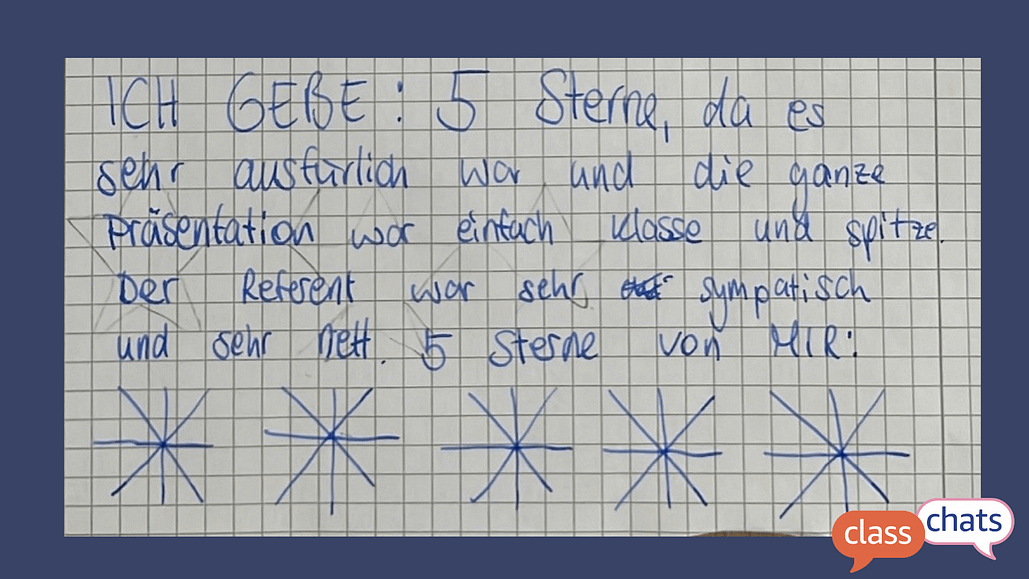 ICH GEBE: 5 Sterne, da es
sehr ausfürlich war und die ganze
Präsentation war einfach klasse und spitze.
Der Referent war sehr sympatisch
und sehr nett. 5 Sterne von MIR:
class
chats